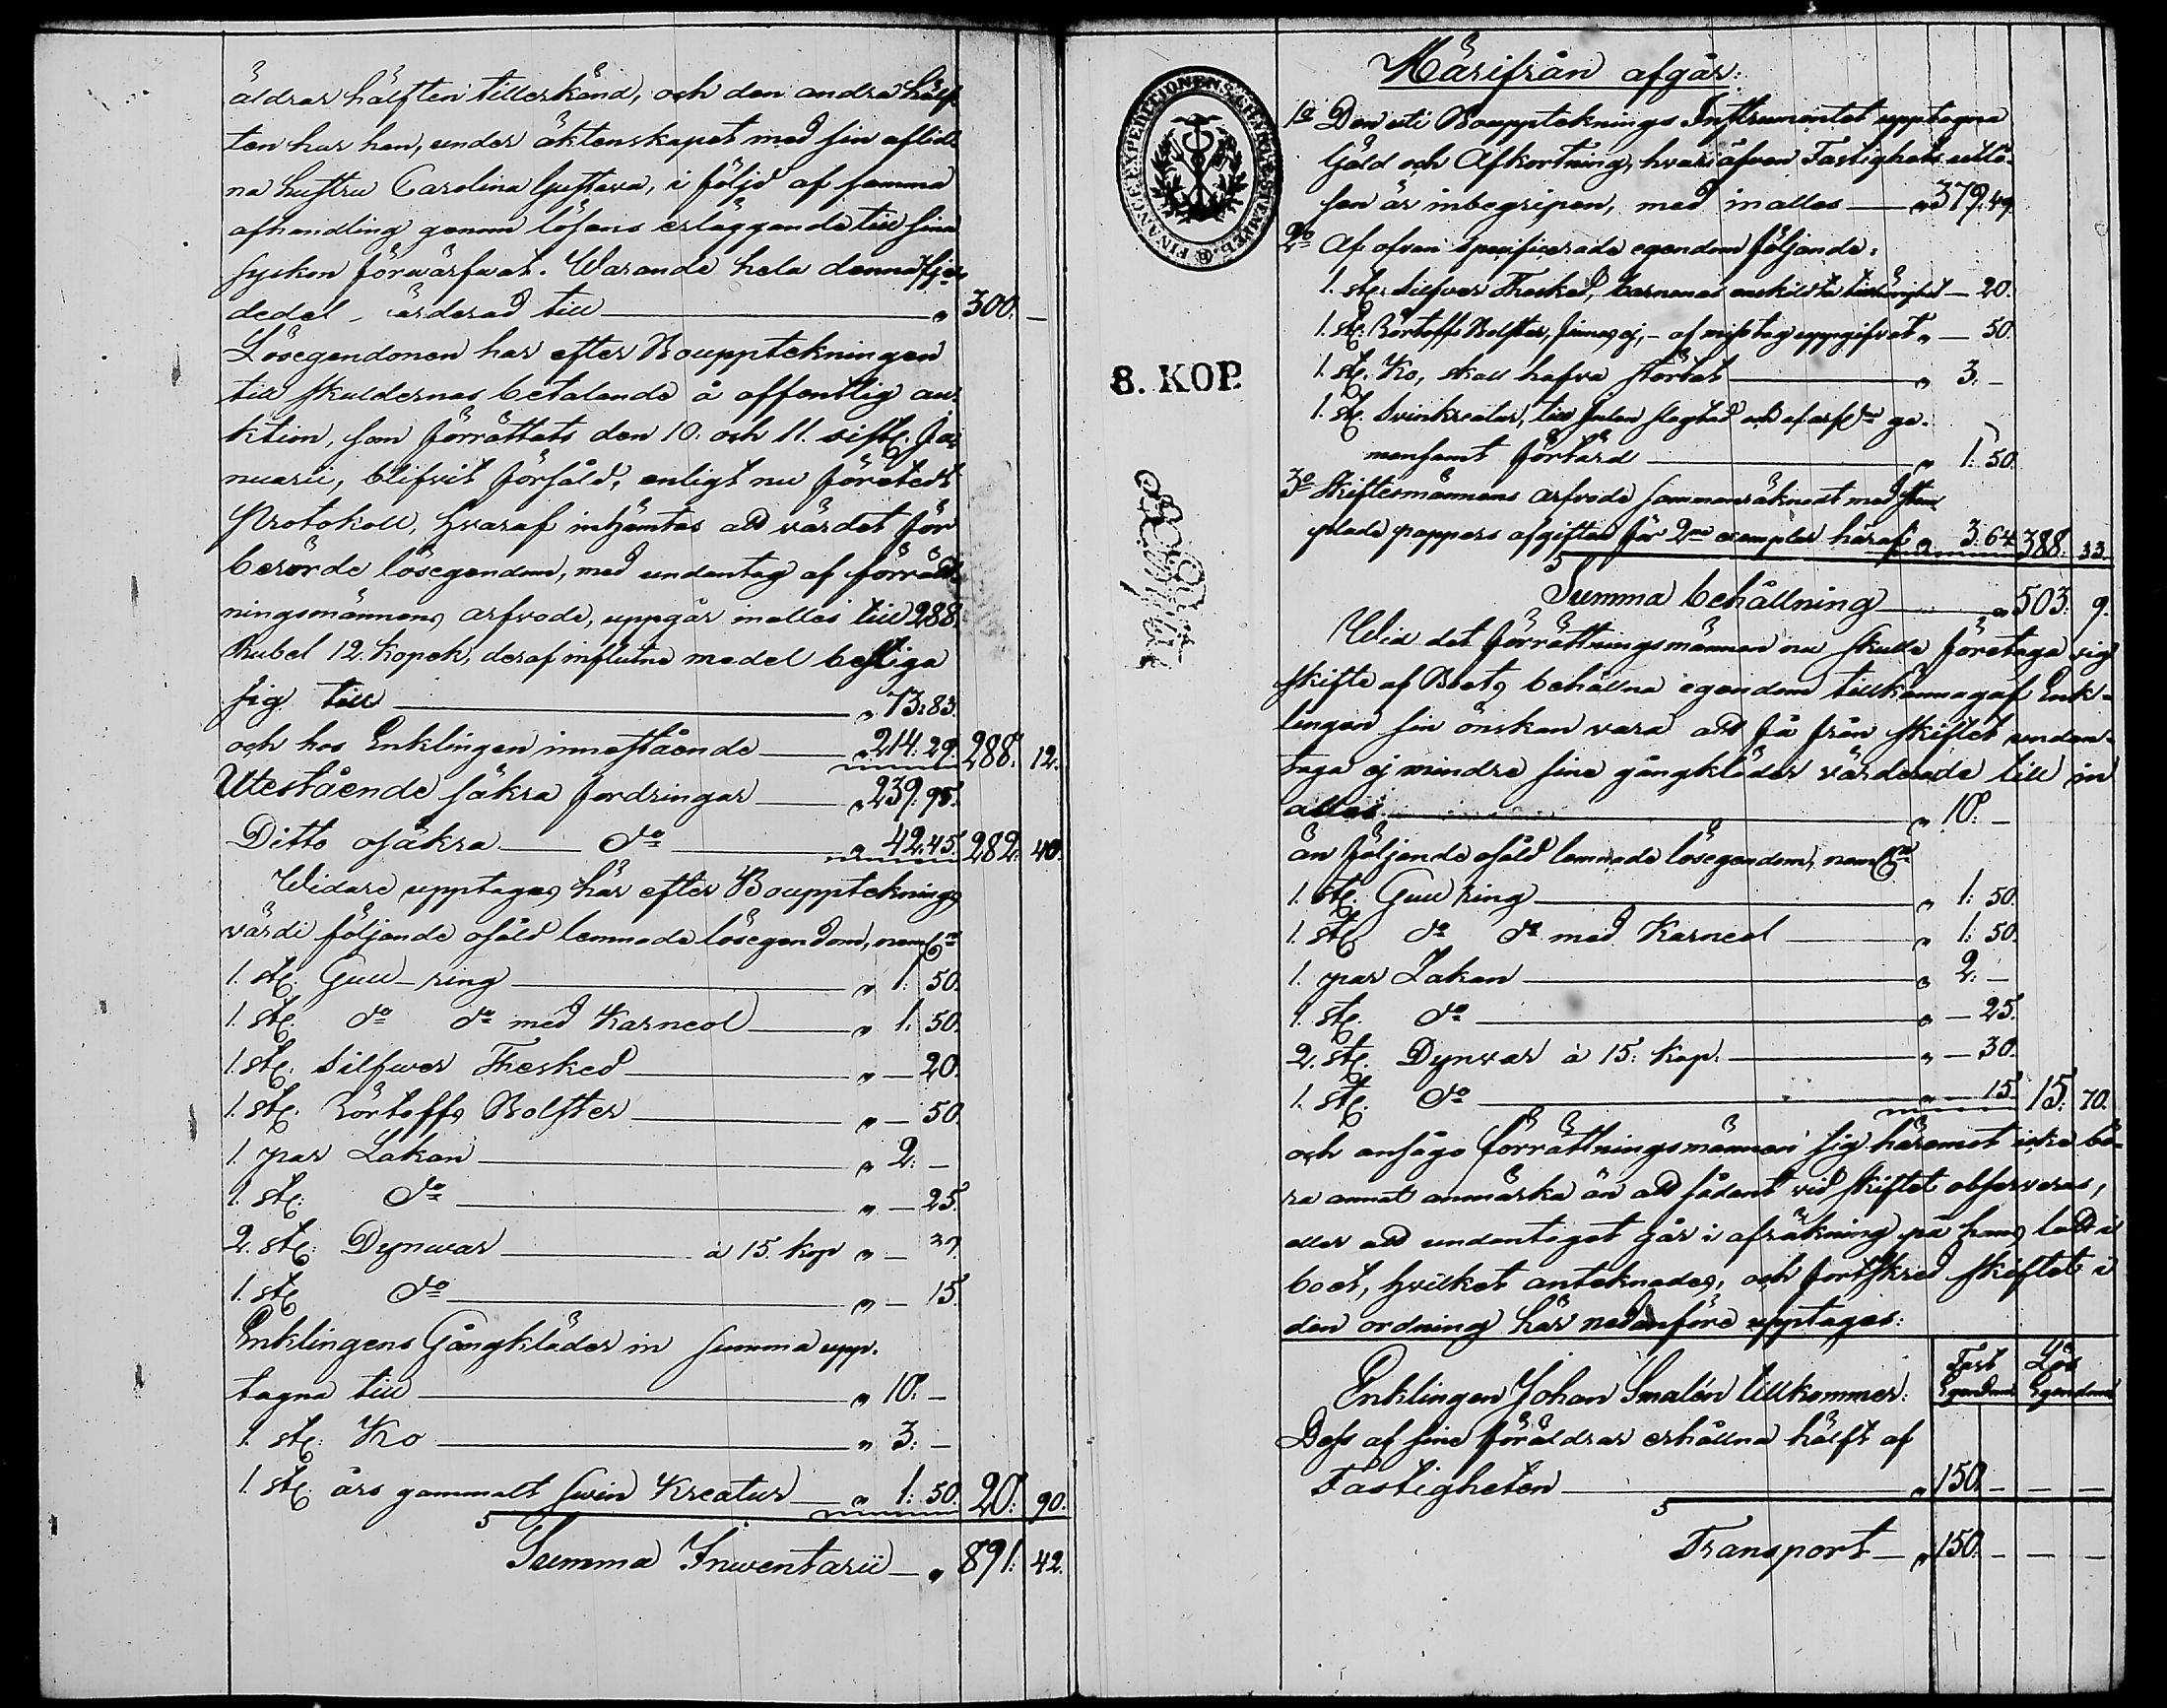 äldrar hälften tillerkänd, och den andra hälf-
ten har han, under äktenskapet med sin aflid-
na hustru Carolina Gustava, i följd af samma
afhandling genom lösens erläggande till sina
syskon förwärfwat. Warande hela denna fjer-
dedel värderad till " 300. —
Lösegendomen har efter Bouppteckningen
till skuldernas betalande å offentlig au-
ktion, som förrättats den 10. och 11. sistl. Ja-
nuarii, blifvit försåld, enligt nu företedt
Protokoll, hvaraf inhämtas att värdet för
berörde lösegendom, med undantag af förrätt-
ningsmännens arfvode, uppgår inalles till 288.
Rubel 12. Kopek, deraf influtne medel bestiga
sig till " 73:83.
och hos Enklingen innestående " 214:29. 288. 12.
Utestående säkra fordringar " 239.95.
Ditto osäkra do " 42.45. 282. 40.
Widare upptages här efter Bouppteknings
värde följande osåld lemnade lösegendom, neml:n
1. st. Gull-ring " 1: 50.
1. st. do do med Karneol " 1: 50.
1. st. Silfwer Thesked " — 20.
1. st. Rörtoffs Bolster " — 50.
1. par Lakan " 2: —
1. st. do " — 25.
2. st. Dynwar à 15. kop " — 30.
1. st. do " — 15.
Enklingens Gångkläder in summa upp-
tagna till " 10: —
1. st. Ko " 3: —
1. st. års gammalt swin Kreatur " 1: 50. 20: 90.
Summa Inwentarii " 891: 42.
FINANCE EXPEDITIONENS CHARTÆ STEMPEL
8. KOP.
Härifrån afgår:
1o Den uti Bouppteknings Instrumentet upptagna
Gäld och Afkortning, hvari äfven Fastighets utlö-
sen är inbegripen, med inalles " 379.49
2o Af ofvan specificerade egendom följande:
1. st. Silfver Thesked, barnens enskildta tillhörighet — 20.
1. st. Rörtoffs Bolster, finnes ej, — af misstag uppgifvet " — 50.
1. st. Ko, skall hafva störtat " 3. —
1. st. Svinkreatur, till Julen slagtad och af arf:ne ge-
mensamt förtärd " 1: 50.
3o Skiftesmännens arfvode sammanräknadt med stem-
plade pappers afgiften för 2ne exemplar häraf " 3. 64. 388. 33.
Summa behållning " 503. 9.
Wid det förrättningsmännen nu skulle företaga sig
skifte af Boets behållna egendom tillkännagaf Enk-
lingen sin önskan vara att få från skiftet undan-
taga ej mindre sine gångkläder värderade till in
alles " 10: —
än följande osåld lemnade lösegendom, neml:n
1. st. Gull ring " 1: 50.
1. st. do do med Karneol " 1: 50.
1. par Lakan " 2: —
1. st. do " — 25.
2. st. Dynvar à 15: kop. " — 30.
1. st. do " — 15. 15. 70.
och ansågo förrättningsmännen sig häremot icke bö-
ra annat anmärka än att sådant vid skiftet observeras,
eller att undantaget går i afräkning på hans lott i
boet, hvilket anteknades, och fortskred skiftet i
den ordning här nedanföre upptages:
Fast Egendom Lös Egendom
Enklingen Johan Smalén tillkommer:
Dess af sine föräldrar erhållna hälft af
Fastigheten " 150. — — —
Transport " 150. — — —